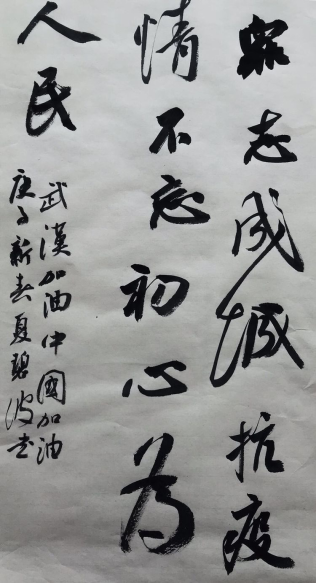 众志成城抗疫
情不忘初心为
人民
武漢加油中國加油
庚子新春夏碧波书